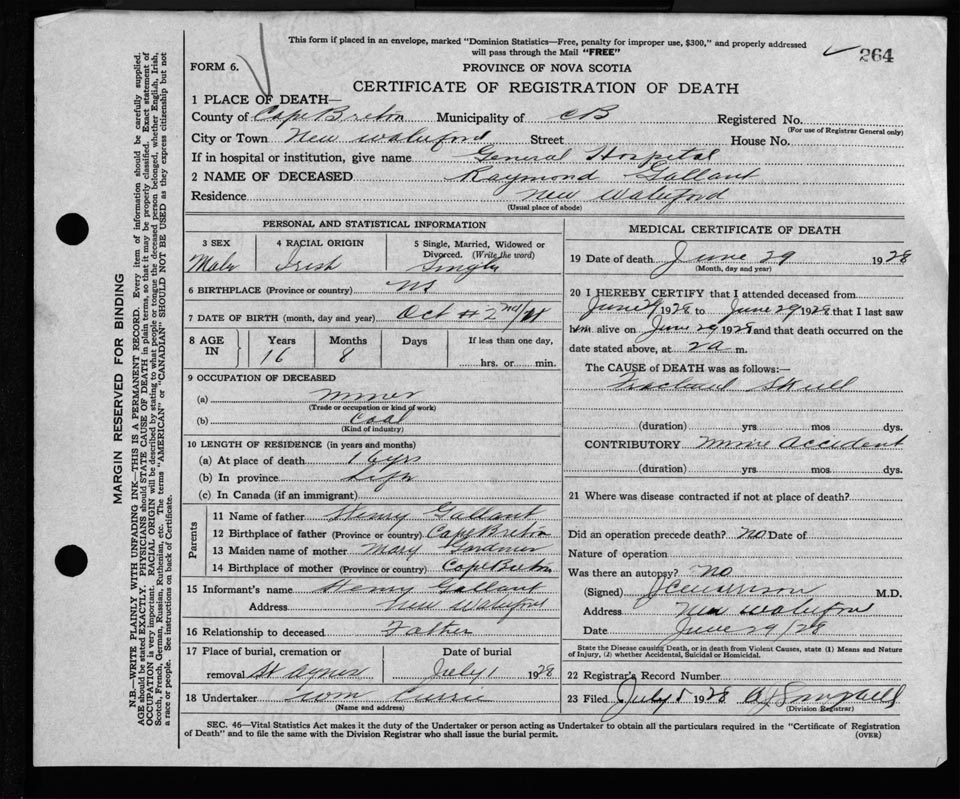 This form if placed in an envelope, marked "Dominion Statistics—Free, penalty for improper use, $300," and properly addressed
will pass through the Mail "FREE"
264
FORM 6.
PROVINCE OF NOVA SCOTIA
CERTIFICATE OF REGISTRATION OF DEATH
1 PLACE OF DEATH—
County of Cape Breton Municipality of CB Registered No.
(For use of Registrar General only)
City or Town New Waterford Street House No.
If in hospital or institution, give name General Hospital
2 NAME OF DECEASED Raymond Gallant
Residence New Waterford
(Usual place of abode)
MARGIN RESERVED FOR BINDING
N.B.—WRITE PLAINLY WITH UNFADING INK—THIS IS A PERMANENT RECORD. Every item of information should be carefully supplied.
AGE should be stated EXACTLY. PHYSICIANS should STATE CAUSE OF DEATH in plain terms, so that it may be properly classified. Exact statement of
OCCUPATION is very important. RACIAL ORIGIN will be described by stating to what people or tongue the deceased person belonged, whether English, Irish,
Scotch, French, German, Russian, Ruthenian, etc. The terms "AMERICAN" or "CANADIAN" SHOULD NOT BE USED as they express citizenship but not
a race or people. See instructions on back of Certificate.
PERSONAL AND STATISTICAL INFORMATION
3 SEX 4 RACIAL ORIGIN 5 Single, Married, Widowed or
Divorced. (Write the word)
Male Irish Single
6 BIRTHPLACE (Province or country) NS
7 DATE OF BIRTH (month, day and year) Oct 2nd/11
8 AGE IN Years Months Days If less than one day,
16 8 hrs. or min.
9 OCCUPATION OF DECEASED
(a) Miner
(Trade or occupation or kind of work)
(b) Coal
(Kind of industry)
10 LENGTH OF RESIDENCE (in years and months)
(a) At place of death 16 yrs
(b) In province Life
(c) In Canada (if an immigrant)
Parents
11 Name of father Henry Gallant
12 Birthplace of father (Province or country) Cape Breton
13 Maiden name of mother Mary Gardner
14 Birthplace of mother (Province or country) Cape Breton
15 Informant's name Henry Gallant
Address New Waterford
16 Relationship to deceased Father
17 Place of burial, cremation or Date of burial
removal St Agnes July 1 1928
18 Undertaker Currie
(Name and address)
MEDICAL CERTIFICATE OF DEATH
19 Date of death June 29 1928
(Month, day and year)
20 I HEREBY CERTIFY that I attended deceased from
June 1928 to June 29 1928 that I last saw
him alive on June 29 1928 and that death occurred on
date stated above, at 2 a m.
The CAUSE of DEATH was as follows:—
Fractured Skull
(duration) yrs mos dys.
CONTRIBUTORY Mine Accident
(duration) yrs mos dys.
21 Where was disease contracted if not at place of death?
Did an operation precede death? No Date of
Nature of operation
Was there an autopsy? No
(Signed) M.D.
Address New Waterford
Date June 29/28
State the Disease causing Death, or in death from Violent Causes, state (1) Means and Nature
of Injury, (2) whether Accidental, Suicidal or Homicidal.
22 Registrar's Record Number
23 Filed July 5 1928
(Division Registrar)
SEC. 46—Vital Statistics Act makes it the duty of the Undertaker or person acting as Undertaker to obtain all the particulars required in the "Certificate of Registration
of Death" and to file the same with the Division Registrar who shall issue the burial permit.
(OVER)